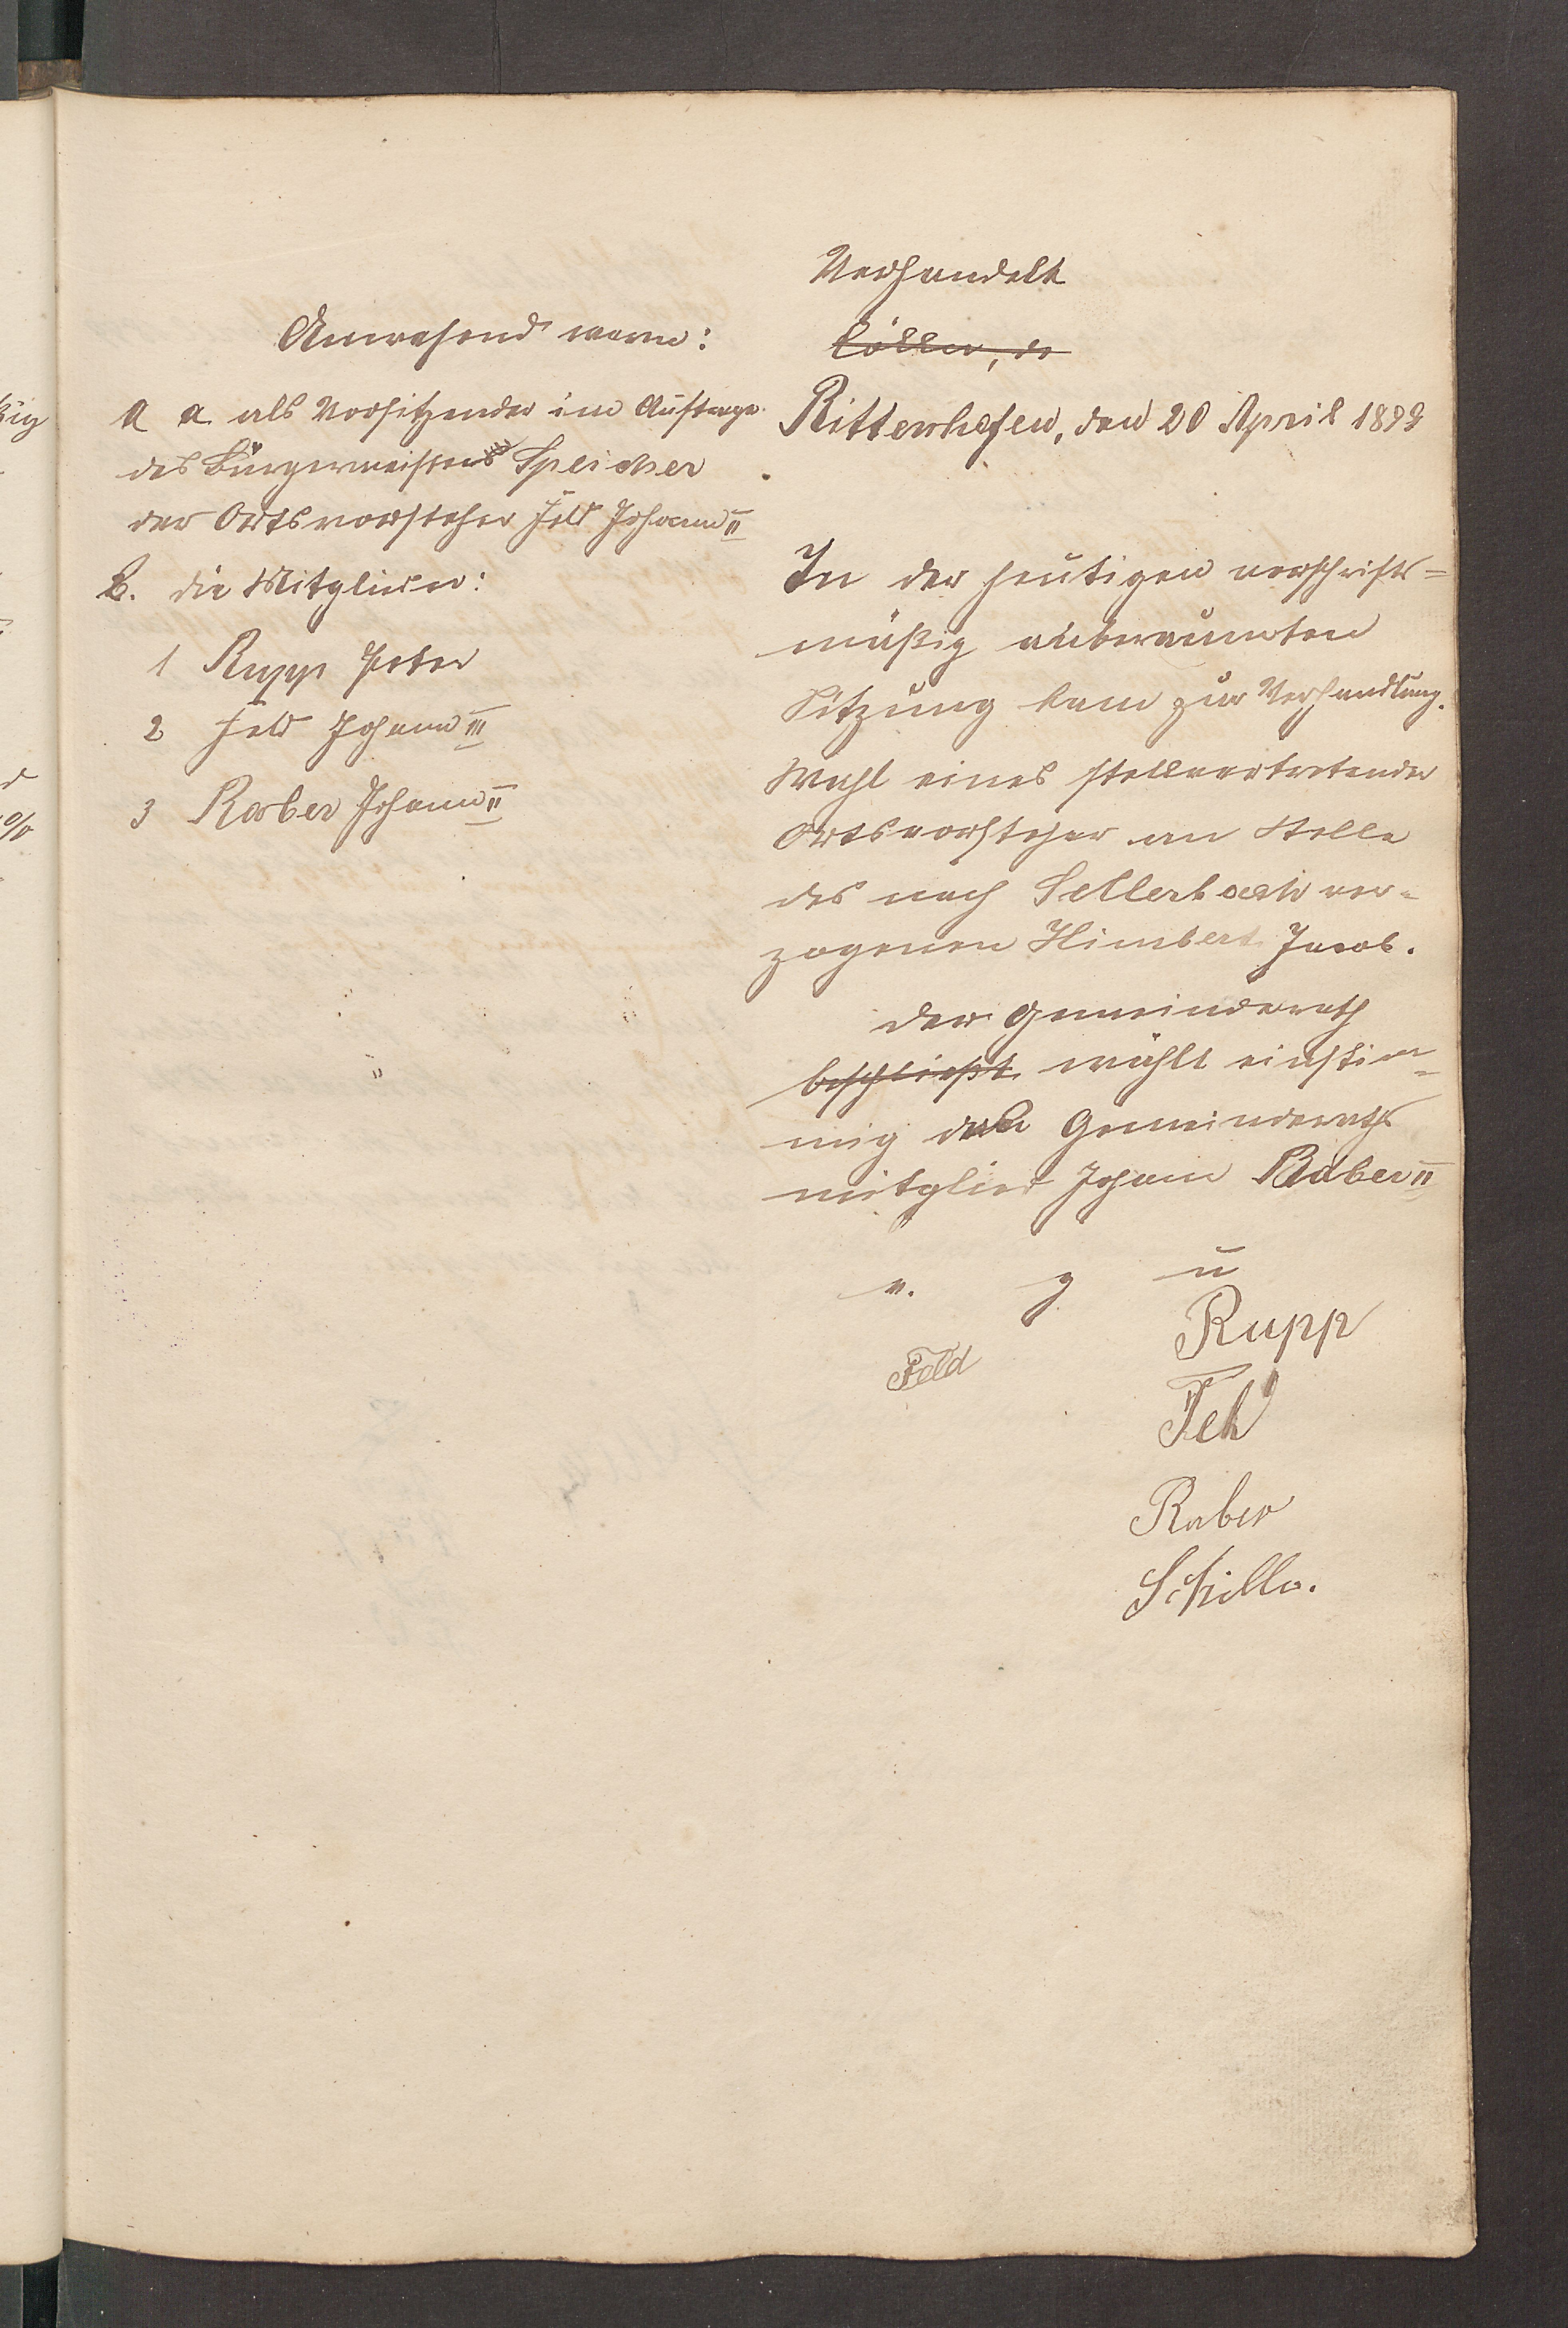 Anwesend waren:
A a als Vorsitzender im Auftrage
des Bürgermeisters Speicher
der Ortsvorsteher Feld Johann II
B. die Mitglieder:
1 Rupp Peter
2 Feld Johann III
3 Raber Johann II
Verhandelt
Cölln, d
Rittenhofen, den 20 April 1899
In der heutigen vorschrifts=
mäßig anberaumten
Sitzung kam zur Verhandlung.
Wahl eines stellvertretender
Ortsvorsteher an Stelle
des nach Sellerbach ver=
zogenen Himbert Jacob.
Der Gemeinderath
beschließt wählt einstim=
mig das Gemeinderaths
mitglied Johann Raber II
v. g u
Rupp
Feld
Feld
Raber